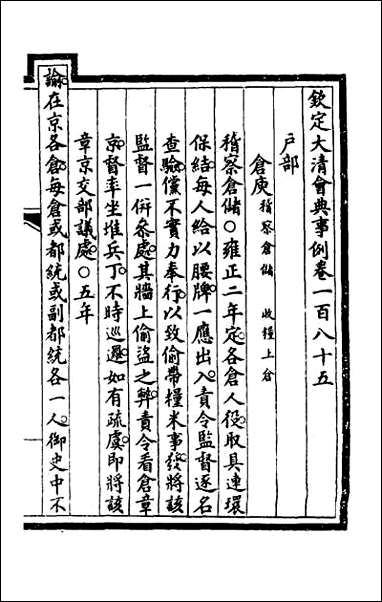 欽定大清會典事例卷一百八十五
戶部
倉庾 稽察倉儲 收糧上倉
稽察倉儲○雍正二年定各倉人役取具連環
保結每人給以腰牌一應出入責令監督逐名
查驗儻不實力奉行以致偷帶糧米事發將該
監督一併叅處其牆上偷盜之弊責令看倉章
京督率坐堆兵丁不時巡邏如有疏虞即將該
章京交部議處○五年
諭在京各倉每倉或都統或副都統各一人御史中不